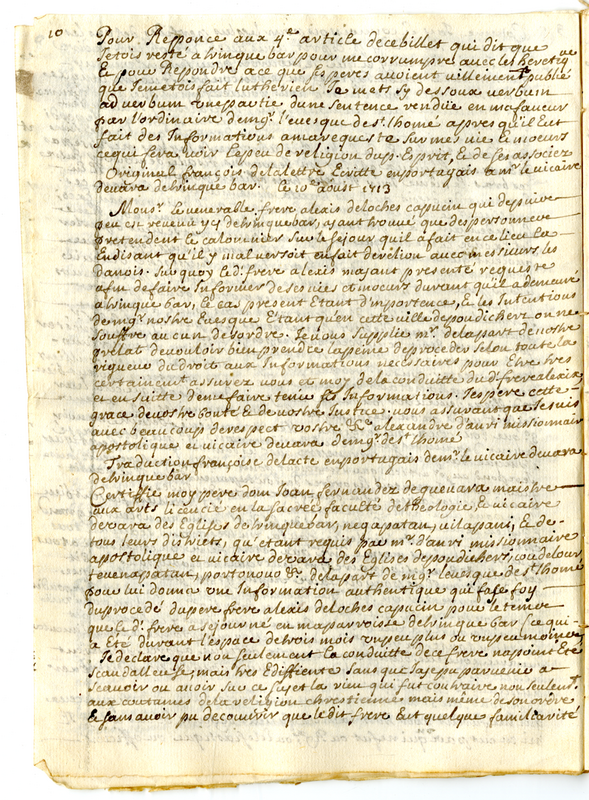 10
Pour Reponce aux 4.e article de ce billet qui dit que
Jetois resté a trinquebar pour me corrumpre avec les heretiq
ue
& pour Repondre a ce que ses peres avoient villement publié
que Jem'etois fait lutherien Je mets sy dessoux verbum
ad verbum une partie dune sentence rendüe en ma faveur
par l'ordinaire de mgr. l'evesque de st. thomé apres qu'il Eut
fait des Informations a ma requeste sur mes vie & moeurs
ce qui fera voir le peu de religion du p. Esprit, & de ses associez
Original françois de la lettre Ecritte en portugais a mr. le vicaire
de vara de trinquebar. le 10e aoust 1713
Monsr. le venerable frere alexis de loches capucin qui depuis un
peu est revenu ycy de trinquebar, ayant trouvé que des personnes
pretendent le calomnier sur le sejour qu'il a fait en ce lieu la
En disant qu'il y malversoit en fait de religion avec messieurs les
danois. sur quoy le d. frere alexis mayant presenté requeste
afin de faire Informer de ses vies et moeurs durant qu'il a demeuré
a trinquebar, le cas present Etant d'importence, & les Intentions
de mgr. nostre Evesque Etant qu'en cette ville de pondichery on ne
souffre aucun desordre. Je vous supplie mr. de la part de nostre
prelat de vouloir bien prendre la peine de proceder selon toute la
rigueur du droit aux Informations necessaires pour Etre tres
certainemt assurez vous et moy de la conduitte du d. frere alexis,
et en suitte de me faire tenir les Informations. Jespere cette
grace de vostre bonté & de vostre Justice. vous assurant que Je suis
avec beaucoup de respect vostre &c. alexandre danri missionnair
apostolique et vicaire de vara de mgr. de st. thomé
Traduction françoise de l'acte en portugais de mr. le vicaire de vara
de trinquebar
Certiffie moy pere dom Joan fernandez de guevara maistre
aux arts licencié en la sacrée faculté de theologie & vicaire
de vara des Eglises de trinquebar, negapatan, & de
tous leurs districts, qu'etant requis par mr. danri missionnaire
apostolique et vicaire de vara des Eglises de pondichery, coudelour,
tevenapatan, portonovo &c. de la part de mgr. levesque de st. thomé
pour lui donner une Information authentique qui fasse foy
du procedé du pere frere alexis de loches capucin pour le temps
que le d. frere a sejourné en ma parroisse de trinquebar (ce qui
a Eté durant l'espace de trois mois un peu plus ou un peu moins)
Je declare que non seulement la conduitte de ce frere na point Eté
scandalleuse, mais tres Ediffiente sans que Jaye pu parvenir a
scavoir ou avoir sur ce sujet la rien qui fut contraire non seulemt.
aux coutumes de la religion chrestienne, mais même de son ordre
& sans avoir pu decouvrir que le dit frere Eut quelque familiarité